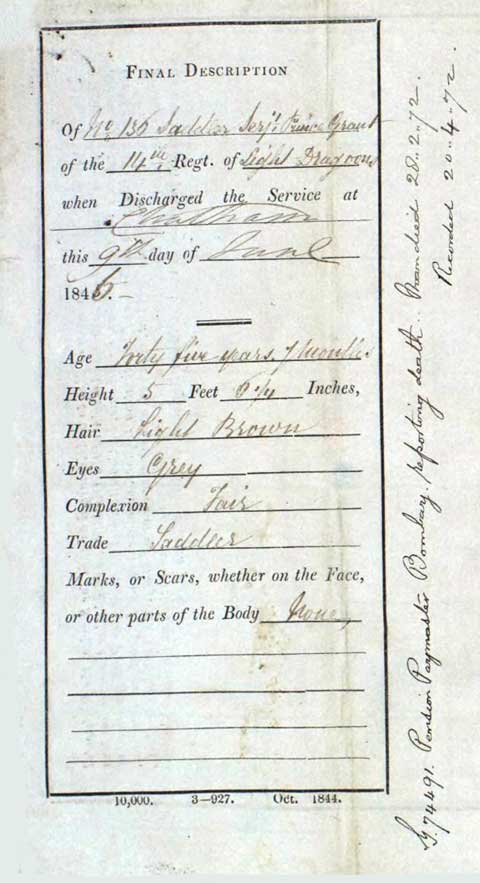 FINAL DESCRIPTION
Of No 136 Saddler Serjt. Prince Grant
of the 14th Regt. of Light Dragoons
when Discharged the Service at
Chatham
this 9th day of June
1846.
Age Forty five years, 7 Months
Height 5 Feet 6 3/4 Inches,
Hair Light Brown
Eyes Grey
Complexion Fair
Trade Saddler
Marks, or Scars, whether on the Face,
or other parts of the Body None,
10,000. 3—927. Oct. 1844.
74491. Pension Paymaster Bombay. reporting death. Man died 28.2.72.
Recorded 20.4.72.